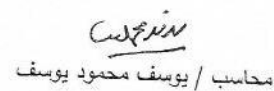 محاسب / يوسف محمود يوسف